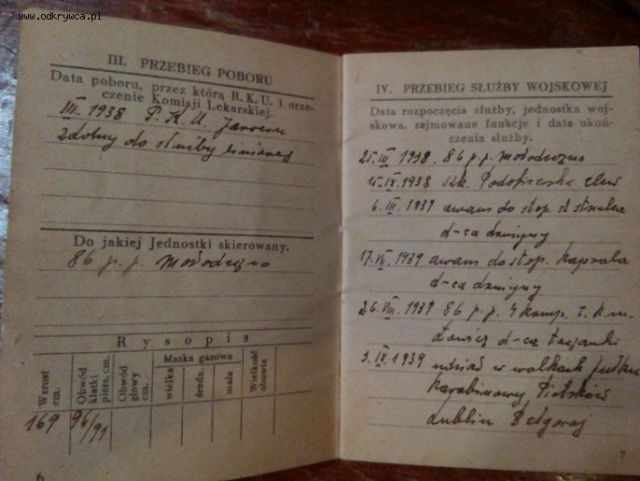 www.odkrywca.pl
III. PRZEBIEG POBORU
Data poboru, przez którą R. K. U. i orze-
czenie Komisji Lekarskiej.
III. 1938 P. K. U.
zdolny do służby liniowej
Do jakiej Jednostki skierowany.
86 p. p. Mołodeczno
Rysopis
Wzrost cm.
Obwód klatki piers. cm.
Obwód głowy cm.
Maska gazowa
wielka
średn.
mała
Wielkość obuwia
169 96/91
6
IV. PRZEBIEG SŁUŻBY WOJSKOWEJ
Data rozpoczęcia służby, jednostka woj-
skowa, zajmowane funkcje i data ukoń-
czenia służby.
25.III 1938, 86 p.p. Mołodeczno
15.IX 1938 szk. Podoficerska elew
6.III. 1939 awans do stop. st strzelca
d-ca drużyny
17.VI. 1939 awans do stop. kaprala
d-ca drużyny
26.VIII 1939 86 p.p. 4 komp. c.k.m.
d-ca taczanki
3.IX. 1939 udział w walkach
karabinowej Piotrków
Lublin Biłgoraj
7